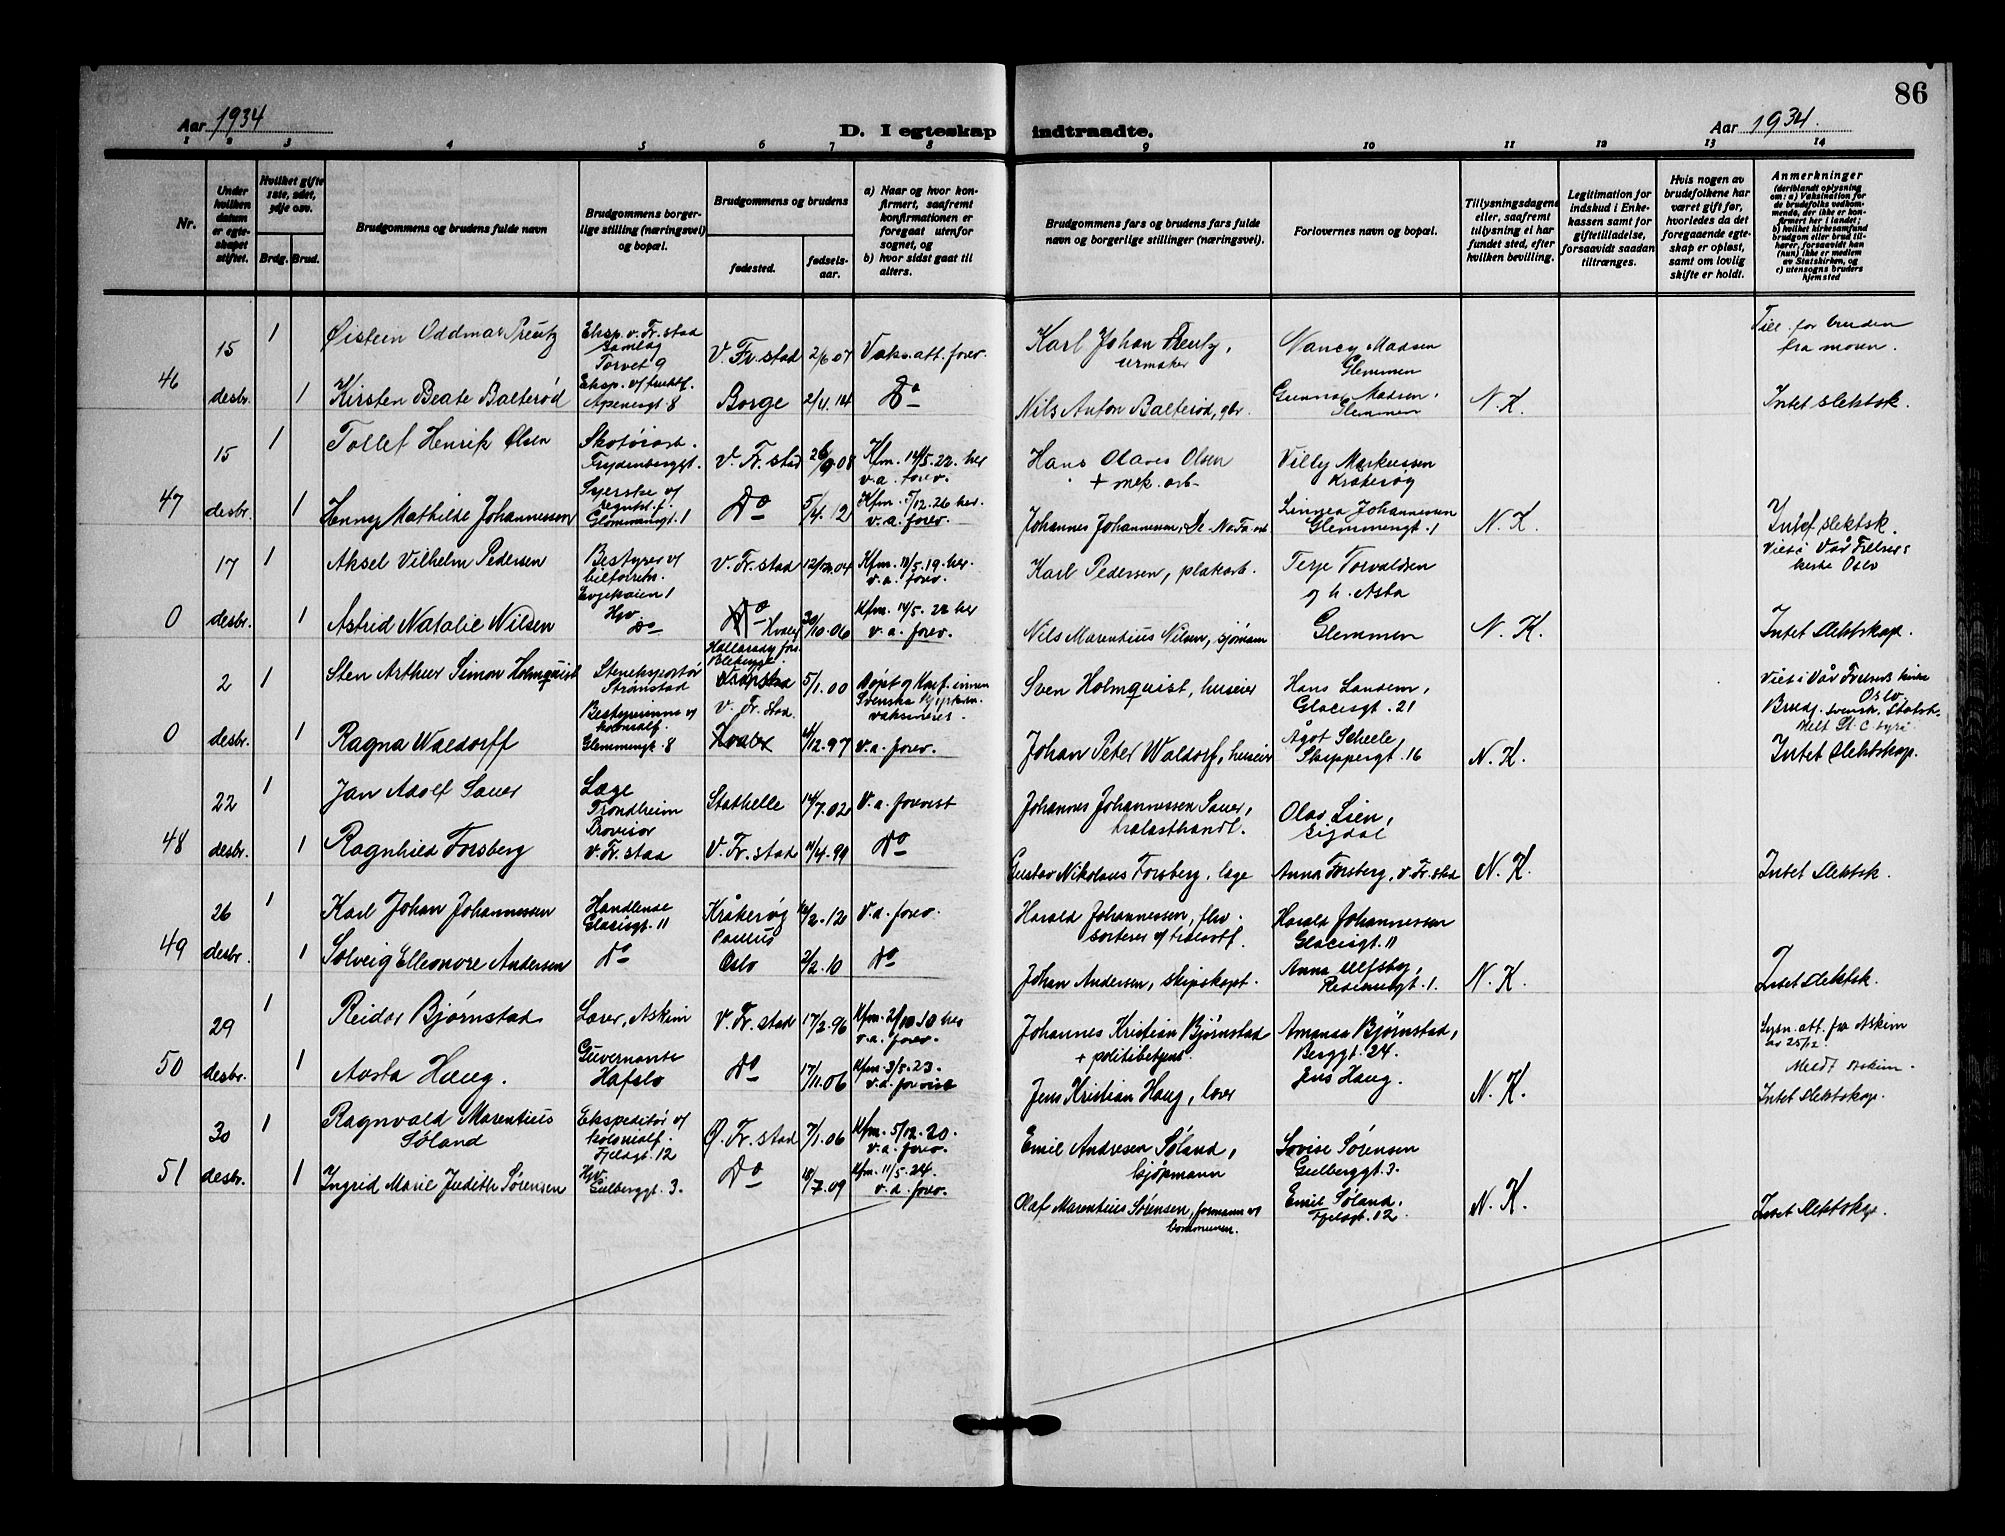 86
Aar 1934
D. I egteskap indtraadte.
Aar 1934.
1 2 3 4 5 6 7 8 9 10 11 12 13 14
Nr.
Under hvilken datum er egteskapet stiftet.
Hvilket gifte 1ste, 2det, 3dje osv.
Brdg. Brud.
Brudgommens og brudens fulde navn
Brudgommens borgerlige stilling (næringsvei) og bopæl.
Brudgommens og brudens
fødested.
fødselsaar.
a) Naar og hvor konfirmert, saafremt konfirmationen er foregaat utenfor sognet, og
b) hvor sidst gaat til alters.
Brudgommens fars og brudens fars fulde navn og borgerlige stillinger (næringsvei).
Forlovernes navn og bopæl.
Tillysningsdagene eller, saafremt tillysning ei har fundet sted, efter hvilken bevilling.
Legitimation for indskud i Enkekassen samt for giftetilladelse, forsaavidt saadan tiltrænges.
Hvis nogen av brudefolkene har været gift før, hvorledes da det foregaaende egteskap er opløst, samt om lovlig skifte er holdt.
Anmerkninger
(deriblandt oplysning om: a) Vaksination for de brudefolks vedkommende, der ikke er konfirmert her i landet;
b) hvilket kirkesamfund brudgom eller brud tilhører, forsaavidt han (hun) ikke er medlem av Statskirken, og
c) utensogns bruders hjemsted
46
15
desbr.
1
Øisteen Oddmar Preutz
Eksp. v. Fr.stad Samlag
Torvet 9
V. Fr.stad
2/6 07
Vaks. att. forev.
Karl Johan Preutz, urmaker
Nancy Madsen
Glemmen
Till. for bruden fra moren.
1
Kirsten Beate Balterød
Apenesgt. 8
Borge
2/11.14
Do
Nils Anton Balterød, gbr.
Gunnar Madsen,
Glemmen
N. K.
Intet slektsk.
47
15
desbr.
1
Tollef Henrik Olsen
Skotøiarb.
Frydenberggt.
V. Fr.stad
26/9.08
Kfm. 14/5.22. her
v.a. forev.
Hans Olaves Olsen
+ mek. arb.
Villy Markussen
Kråkerøy
1
Henny Mathilde Johannessen
Syerske
Glommengt. 1
Do
5/4.12
Kfm. 5/12.26 her.
v.a. forev.
Johannes Johannessen, De No Fa. arb
Linnea Johannessen
Glemmengt. 1
N. K.
Intet slektsk.
0
17
desbr.
1
Aksel Vilhelm Pedersen
Bestyrer av bilforretn.
Evjekaien 1
V. Fr.stad
12/12.04
Kfm. 18/5.19. her.
v.a. forev.
Karl Pedersen, platearb.
Terje Torvaldsen
og h. Asta
Viet i Vår Frelsers kirke Oslo
1
Astrid Natalie Nilsen
Hjv.
Do
Do Hvaler
30/10.06
Kfm. 14/5. 22 her
v.a. forev.
Nils Marentius Nilsen, sjømann
Glemmen
N. K.
Intet slektskap.
0
2
desbr.
1
Sten Arthur Simon Holmquist
Steneksportør
Strømstad
5/1.00
Døpt og konf. innen
Svenska kyrkan.
vaksinert.
Sven Holmquist, huseier
Hans Landem,
Glacisgt. 21
Viet i Vår Frelsers kirke
Oslo.
Brudg. svensk. Statsb.
1
Ragna Waldorff
Bestyrerinne av kolonialf.
Glemmengt. 8
V. Fr. stad.
Hvaler
4/12.97
v.a. forev.
Johan Peter Waldorf, huseier
Ågot Scheele,
Skippergt. 16
N. K.
Intet slektskap.
48
22
desbr.
1
Jan Adolf Sauer
Læge
Trondheim
Stathelle
14/7.02
V.a. forevist
Johannes Johannessen Sauer,
trelasthandl.
Olav Lien,
Sigdal
1
Ragnhild Forsberg
Provisor
V. Fr.stad
V. Fr.stad
11/4.99
Do
Gustav Nikolaus Forsberg, læge
Anna Forsberg, V. Fr.stad
N. K.
Intet slektsk.
49
26
desbr.
1
Karl Johan Johannessen
Handlende
Glacisgt. 11
Kråkerøy
12/2.12
V.a. forev.
Harald Johannessen,
sorterer
Harald Johannessen
Glacisgt. 11
1
Solveig Elleonore Andersen
Do
Paulus
Oslo
2/2.10
Do
Johan Andersen, skipskapt.
Anna Ulfsby,
N. K.
Intet slektsk.
50
29
desbr.
1
Reidar Bjørnstad
Lærer, Askim
V. Fr.stad
17/2.96
Kfm. 2/10.10 her
v.a. forev.
Johannes Kristian Bjørnstad
+ politibetjent.
Amanda Bjørnstad,
Berggt. 24.
Lysn. att. fra Askim
av 25/12.
Meldt Askim.
1
Aasta Haug.
Guvernante
Hafslo
Do
17/11.06
Kfm. 3/5.23.
v.a. forevist
Jens Kristian Haug, lærer
Jens Haug.
N. K.
Intet slektskap.
51
30
desbr.
1
Ragnvald Marentius
Søland
Ekspeditør av kolonialf.
Fjeldgt. 12
Ø. Fr.stad
7/1.06
Kfm. 5/12.20.
v.a. forev.
Emil Andresen Søland,
kjøpmann
Lovise Sørensen
Gulberggt. 3.
1
Ingrid Marie Judith Sørensen
Hjv.
Gulberggt. 3.
Do
18/7.09
Kfm. 11/5.24.
v.a. forev.
Olaf Marentius Sørensen, formann v/
kommunen.
Emil Søland,
Fjeldgt. 12.
N. K.
Intet slektskap.